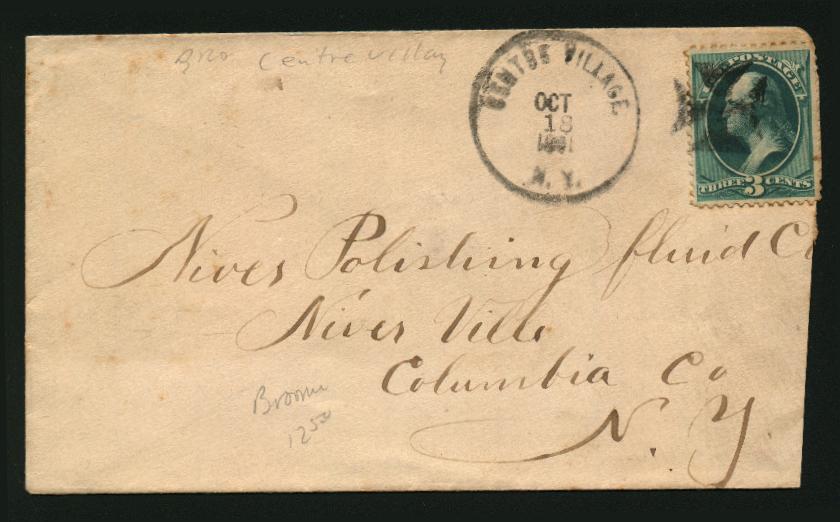 Bro Centre Villag
CENTRE VILLAGE
OCT
18
1881
N. Y.
U.S. POSTAGE
THREE 3 CENTS
Niver Polishing fluid Co
Niver Ville
Columbia Co
N. Y.
Broome
12 50